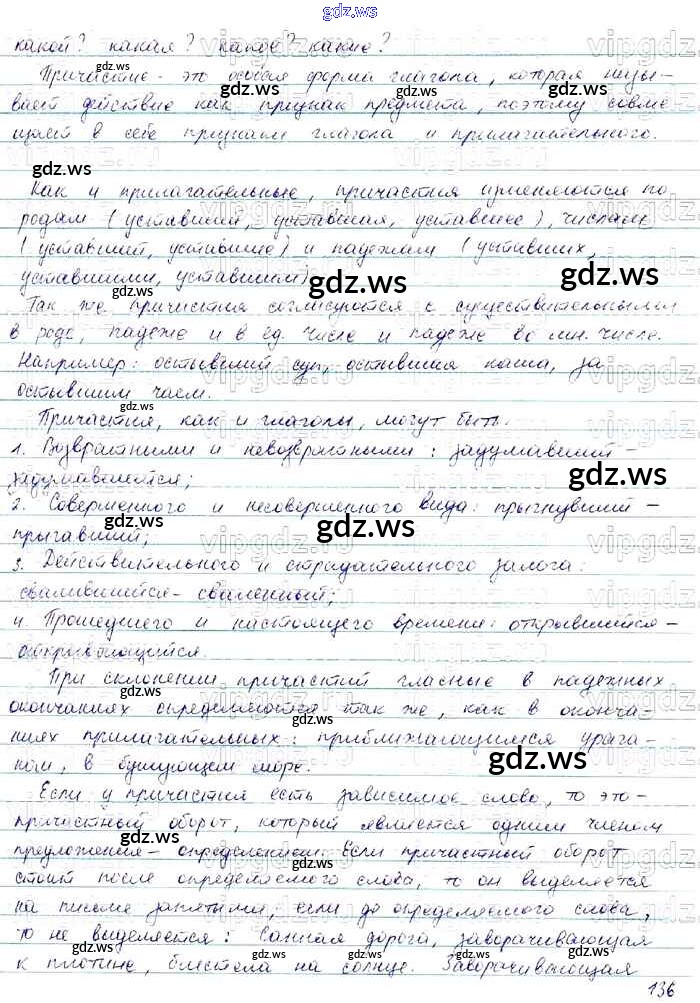 gdz.ws
какой? какая? какое? какие?
Причастие - это особая форма глагола, которая назы-
вает действие как признак предмета, поэтому совме
щает в себе признаки глагола и прилагательного.
Как и прилагательные, причастия изменяются по
родам (уставший, уставшая, уставшее), числам
(уставший, уставшие) и падежам (уставших,
уставшими, уставшим).
Так же причастия согласуются с существительными
в роде, падеже и в ед. числе и падеже во мн. числе.
Например: остывший суп, остывшая каша, за
остывшим чаем.
Причастия, как и глаголы, могут быть.
1. Возвратными и невозвратными: задумавший -
задумавшийся;
2. Совершенного и несовершенного вида: прыгнувший -
прыгавший;
3. Действительного и страдательного залога:
свалившийся - сваленный;
4. Прошедшего и настоящего времени: открывшийся -
открывающийся.
При склонении причастий гласные в падежных
окончаниях определяются так же, как в оконча-
ниях прилагательных: приближающимся урага-
ном, в бушующем море.
Если у причастия есть зависимое слово, то это -
причастный оборот, который является одним членом
предложения - определением. Если причастный оборот
стоит после определяемого слова, то он выделяется
на письме запятыми, если до определяемого слова,
то не выделяется: Санная дорога, заворачивающая
к плотине, блестела на солнце. Заворачивающая
136